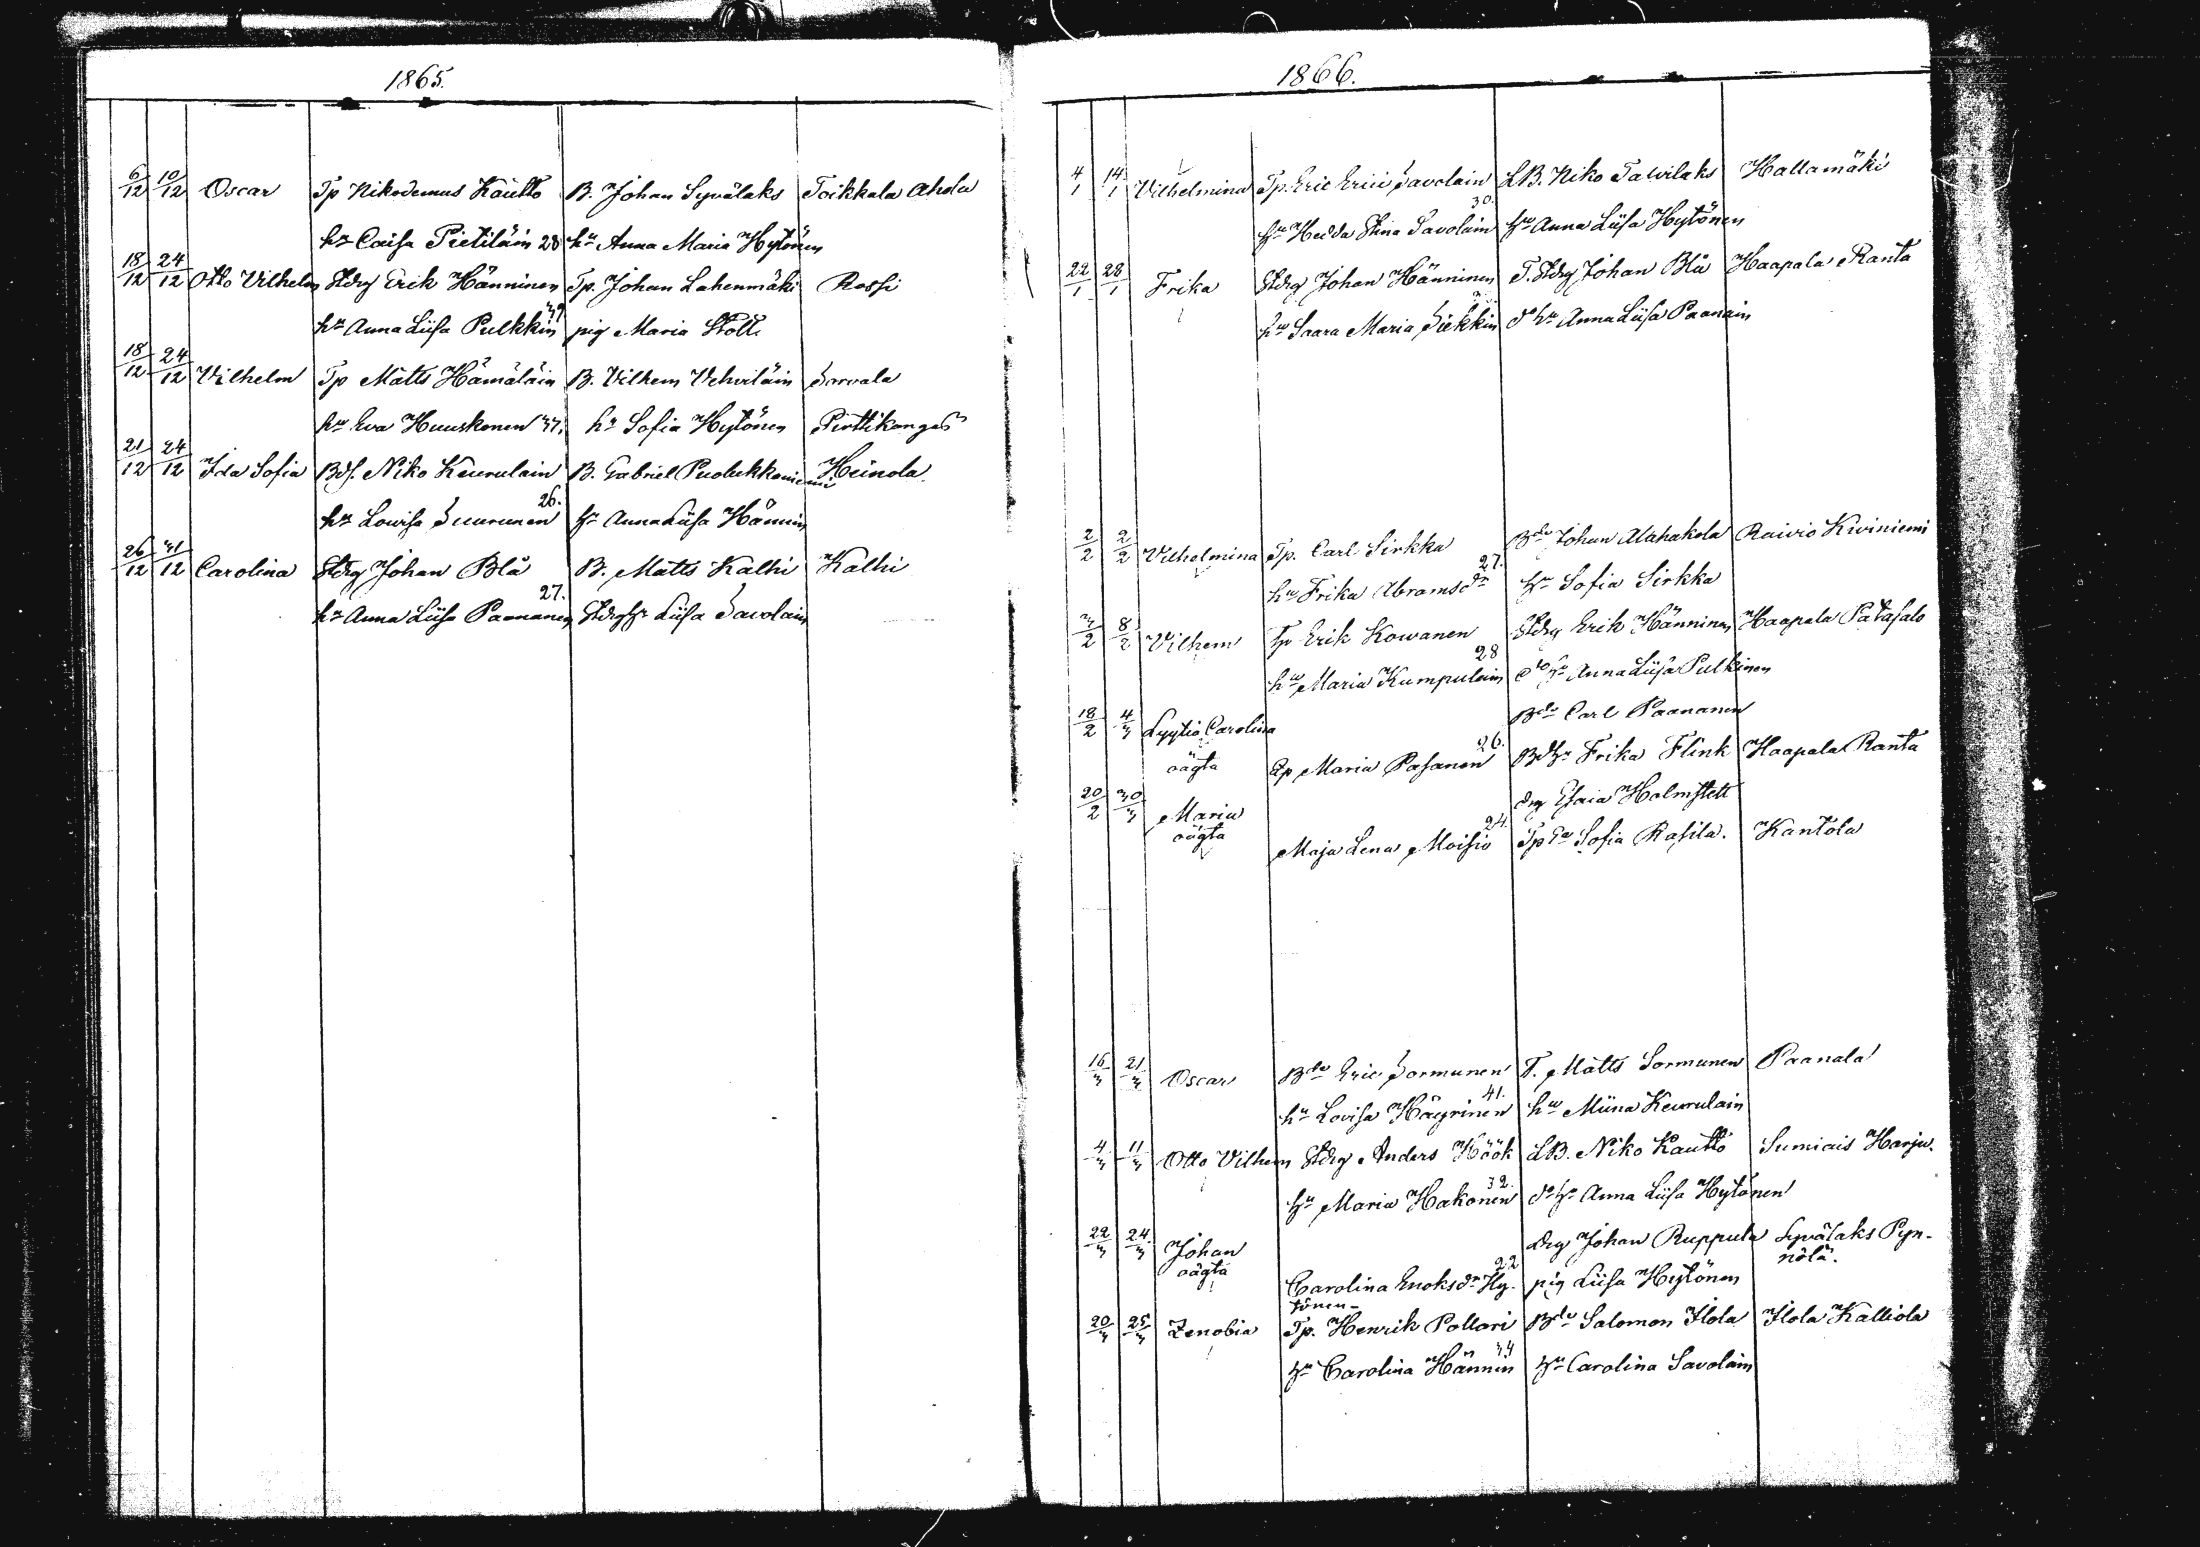 1865.
6/12 10/12 Oscar Tp Nikodemus Kautto B. Johan Syvälaks Toikkala Ahola
hu Caisa Pietiläin 28 hu Anna Maria Hytönen
18/12 24/12 Otto Vilhelm Stdrg Erik Hänninen Tp. Johan Lahenmäki Rossi
hu Anna Liisa Pulkkin 39 pig Maria Stolt
18/12 24/12 Vilhelm Tp Matts Hämäläin B. Vilhem Vehviläin Sarvala
hu Eva Huuskonen 37. hu Sofia Hytönen Pirttikangas
21/12 24/12 Ida Sofia Bds. Niko Keurulain B. Gabriel Puolukkaniemi Heinola.
hu Lovisa Suurunen 26. hu Anna Liisa Hännin
26/12 31/12 Carolina Stdrg Johan Blå B. Matts Kalhi Kalhi
hu Anna Liisa Paananen 27. Stdrghu Liisa Savolain
1866.
4/1 14/1 Vilhelmina Tp. Eric Erici Savolain LB. Niko Talvilaks Hallamäki
hu Hedda Stina Savolain 30. hu Anna Liisa Hytönen
22/1 28/1 Frika Stdrg Johan Hänninen T. Stdrg Johan Blå Haapala Ranta
hu Saara Maria Siekkin do hu Anna Liisa Paanain
2/2 2/2 Vilhelmina Tp. Carl Sirkka Bde Johan Alahakola Raivio Kiviniemi
hu Frika Abramsdr 27. hu Sofia Sirkka
3/2 8/2 Vilhem Tp Erik Kowanen Stdrg Erik Hänninen Haapala Patasalo
hu Maria Kumpulain 28 do hu Anna Liisa Pulkinen
18/2 4/3 Lyytia Carolina Bde Carl Paananen
oägta Ep Maria Pasanen 26. Bdhu Frika Flink Haapala Ranta
20/2 30/3 Maria drg Esaia Holmstett
oägta Maja Lena Moisio 24. Tp hu Sofia Rasila. Kantola
16/3 21/3 Oscar Bde Eric Sormunen T. Matts Sormunen Paanala
hu Lovisa Häyrinen 41. hu Miina Keurulain
4/3 11/3 Otto Vilhem Stdrg Anders Höök LB. Niko Kautto Sumiais Harju.
hu Maria Hakonen 32. do hu Anna Liisa Hytönen
22/3 24/3 Johan drg Johan Ruppula Syvälaks Pyn-
oägta Carolina Enoksdr Hy- 22 pig Liisa Hytönen nölä.
tönen-
20/3 25/3 Zenobia Tp. Henrik Pollari Bde Salomon Ilola Ilola Kalliola
hu Carolina Hännin 34 hu Carolina Savolain